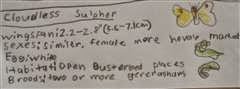 Cloudless Sulpher
wingspan: 2.2-2.8" (5.6-7.1cm)
Sexes: Similer, female more heavly marked
Egg: white
Habitat: Open Busterbed places
Broods: two or more